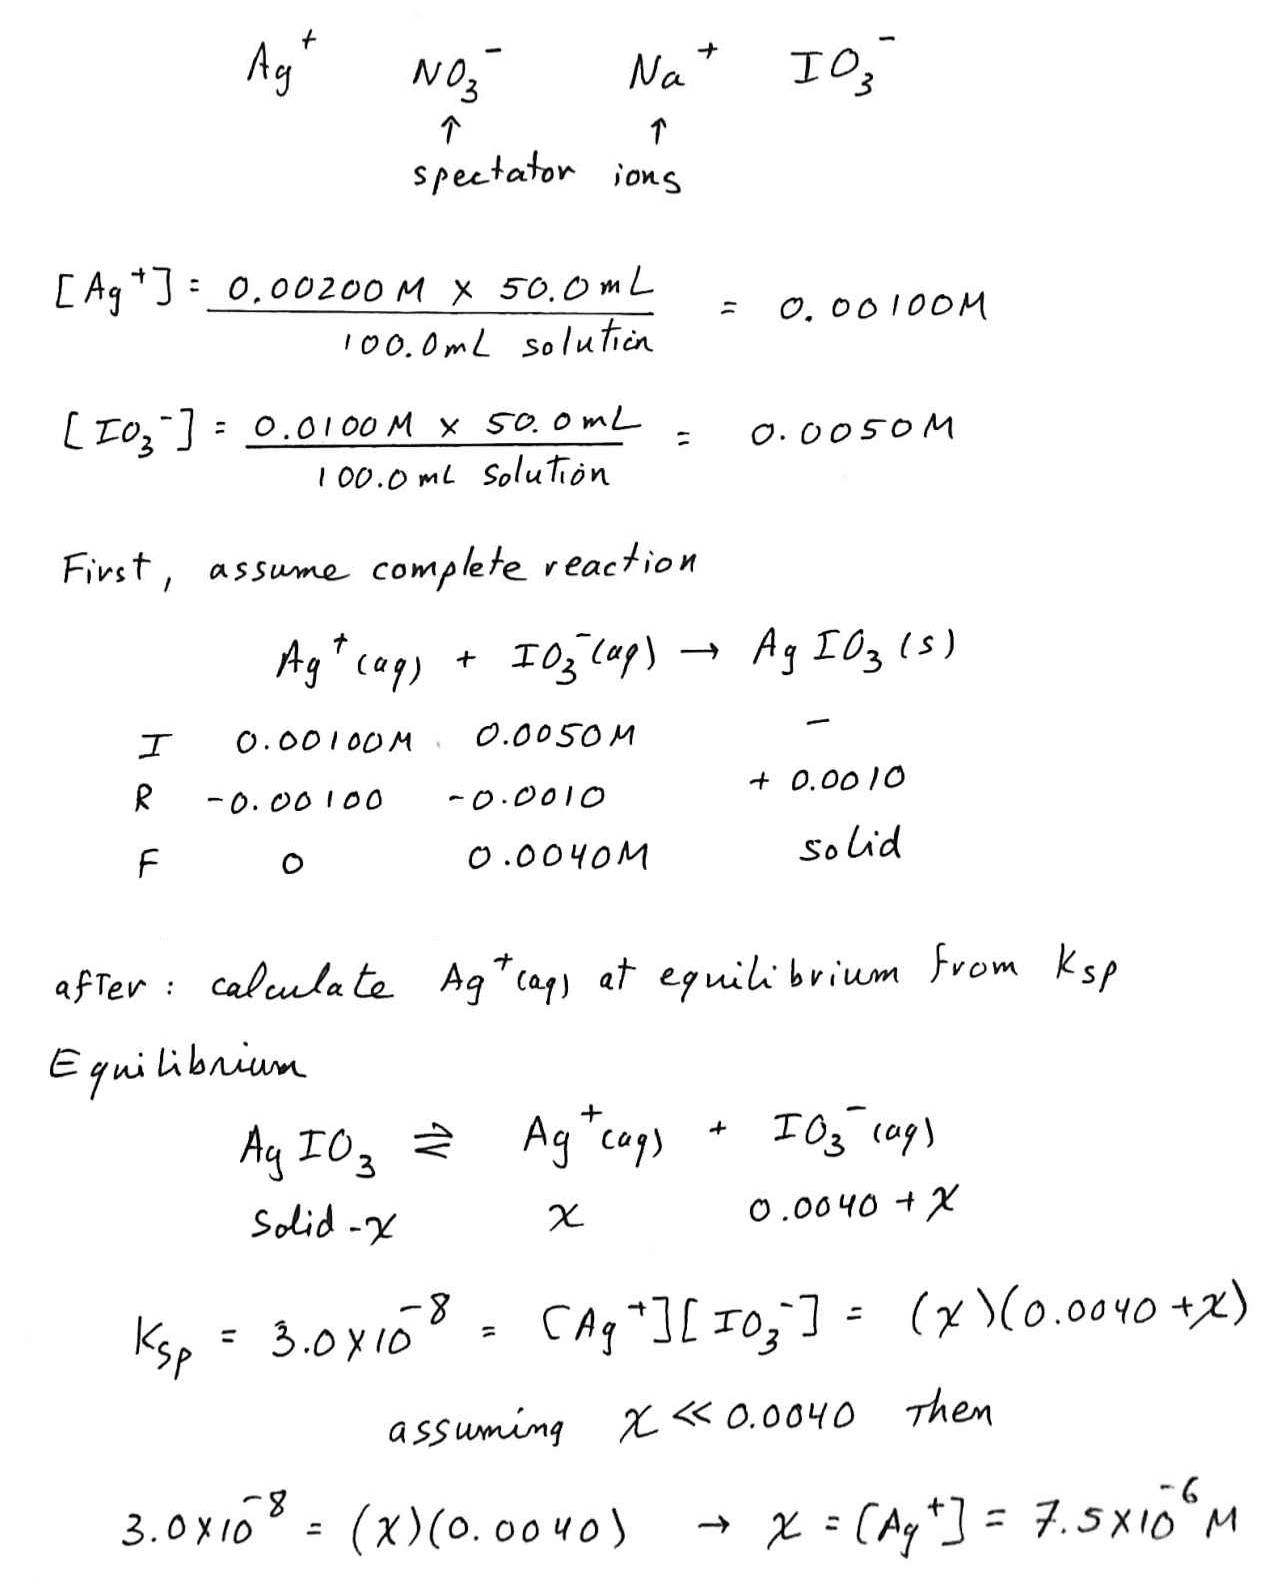 Ag⁺ NO₃⁻ Na⁺ IO₃⁻
↑ ↑
spectator ions
[Ag⁺] = 0.00200 M x 50.0 mL / 100.0 mL solution = 0.00100 M
[IO₃⁻] = 0.0100 M x 50.0 mL / 100.0 mL solution = 0.0050 M
First, assume complete reaction
Ag⁺(aq) + IO₃⁻(aq) → AgIO₃(s)
I 0.00100 M 0.0050 M –
R -0.00100 -0.0010 + 0.0010
F 0 0.0040 M solid
after : calculate Ag⁺(aq) at equilibrium from Ksp
Equilibrium
AgIO₃ ⇌ Ag⁺(aq) + IO₃⁻(aq)
Solid -x x 0.0040 + x
Ksp = 3.0 x 10⁻⁸ = [Ag⁺][IO₃⁻] = (x)(0.0040 + x)
assuming x << 0.0040 then
3.0 x 10⁻⁸ = (x)(0.0040) → x = [Ag⁺] = 7.5 x 10⁻⁶ M